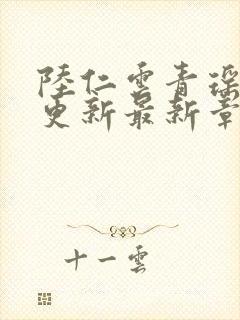 陸仁雲青瑶
更新最新章
十一雲